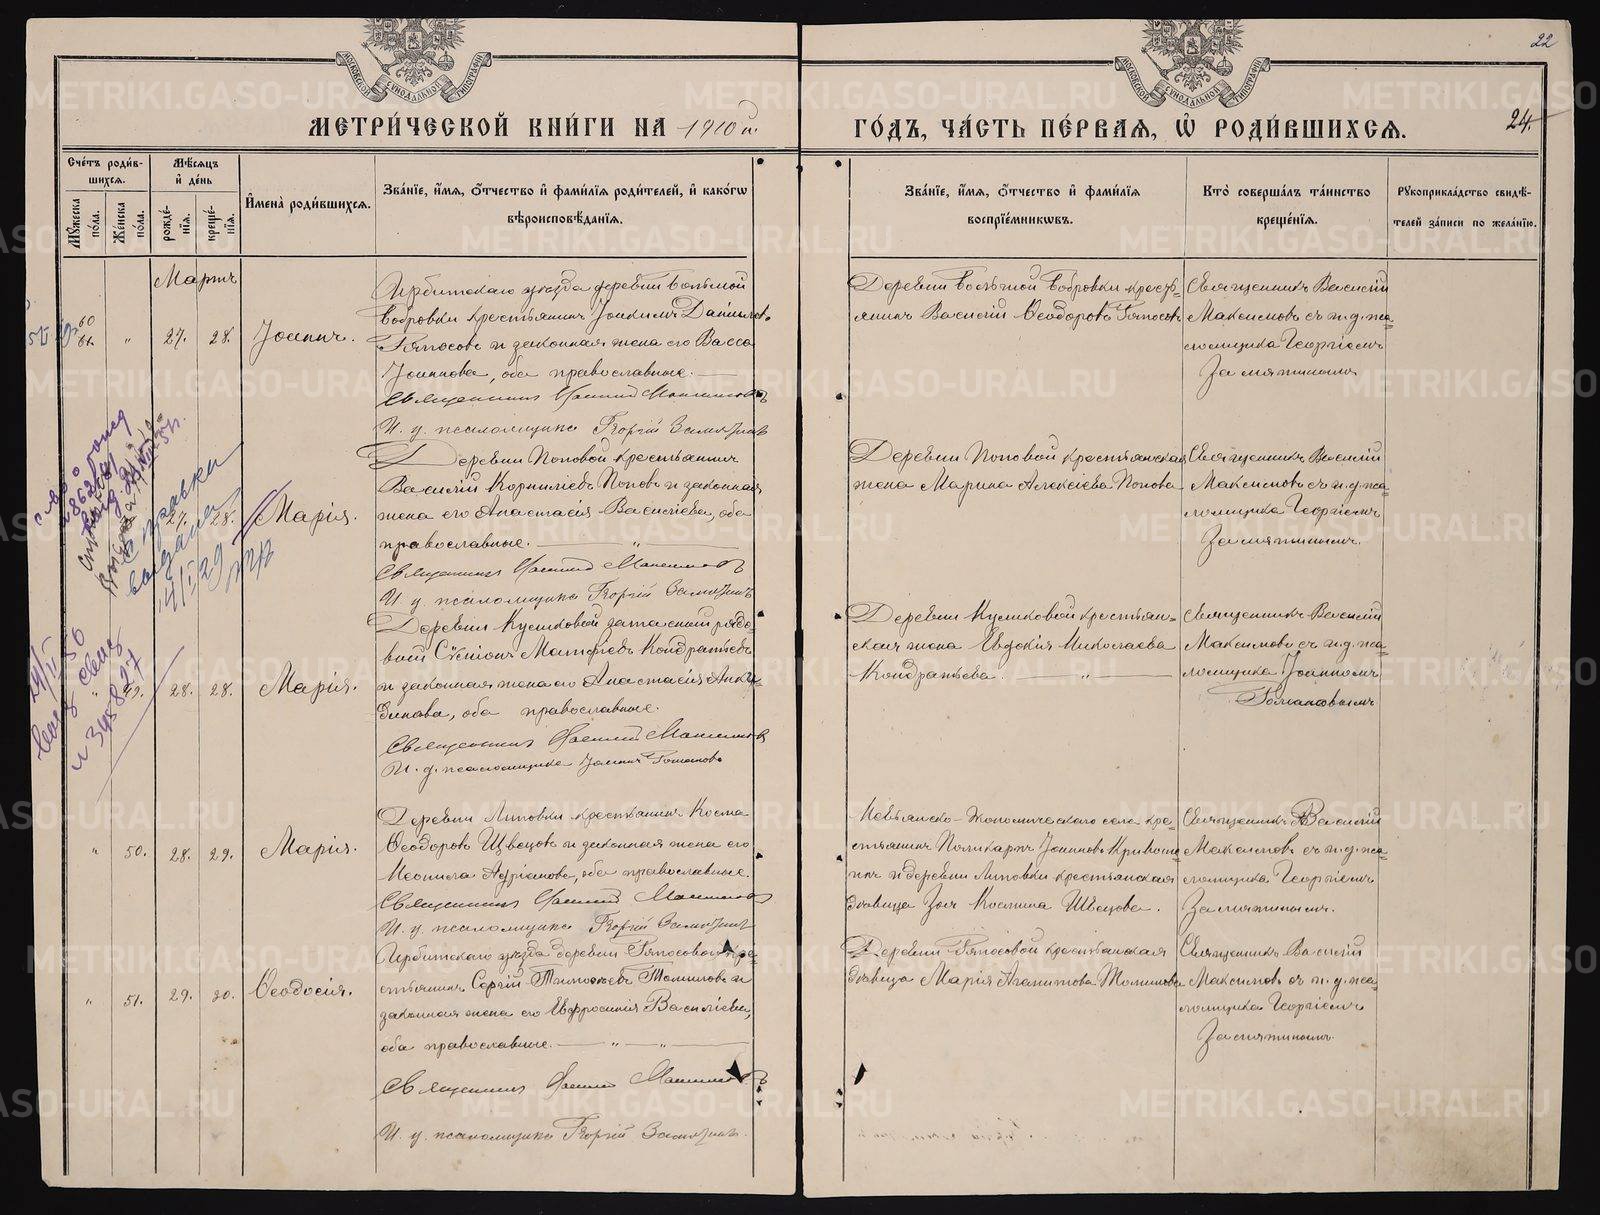 МОСКОВСКОЙ СѴНОДАЛЬНОЙ ТИПОГРАФІИ
МОСКОВСКОЙ СѴНОДАЛЬНОЙ ТИПОГРАФІИ
22
24.
МЕТРИ́ЧЕСКОЙ КНИ́ГИ НА 1910 й.
ГО́ДЪ, ЧА́СТЬ ПЕ́РВАЯ, Ѿ РОДИ́ВШИХСѦ.
Сче́тъ роди́в-
шихсѧ.
Мꙋ́жеска по́ла.
Же́нска по́ла.
Мѣ́сѧцъ и҆ де́нь
рожде́-
нїѧ.
креще́-
нїѧ.
И҆мена̀ роди́вшихсѧ.
Зва́нїе, и҆́мѧ, о҆́тчество и҆ фами́лїѧ роди́телей, и҆ како́гѡ
вѣроисповѣ́данїѧ.
Зва́нїе, и҆́мѧ, о҆́тчество и҆ фами́лїѧ
воспрїе́мникѡвъ.
Кто̀ соверша́лъ та́инство
креще́нїѧ.
Рꙋкоприкла́дство свидѣ́-
телей за́писи по жела́нїю.
Мартъ
60
61.
"
27.
28.
Іоаннъ.
Ирбитскаго уѣзда деревни Большой
Бобровки крестьянинъ Іоакимъ Даніилов.
Гяпосовъ и законная жена его Васса
Іоаннова, оба православные.
Священникъ Василій Максимовъ
И. д. псаломщика Георгій Замятинъ
Деревни Большой Бобровки кресть-
янинъ Василій Ѳеодоровъ Гяпосовъ
Священникъ Василій
Максимовъ съ и.д. пса-
ломщика Георгіемъ
Замятинымъ.
27.
28.
Марія.
Деревни Поповой крестьянинъ
Василій Корниліевъ Поповъ и законная
жена его Анастасія Васильева, оба
православные. "
Священникъ Василій Максимовъ
И. д. псаломщика Георгій Замятинъ
Деревни Поповой крестьянская
жена Марина Алексіева Попова
Священникъ Василій
Максимовъ съ и.д. пса-
ломщика Георгіемъ
Замятинымъ.
справка
выдана
14/I 29
24/I 56
№ 345827
"
49.
28.
28.
Марія.
Деревни Куликовой запасный рядо-
вой Сѵмеонъ Матѳіевъ Кондратьевъ
и законная жена его Анастасія Аики-
динова, оба православные.
Священникъ Василій Максимовъ
И. д. псаломщика Іоаннъ Романовъ
Деревни Куликовой крестьян-
ская жена Евдокія Николаева
Кондратьева. "
Священникъ Василій
Максимовъ съ и.д. пса-
ломщика Іоанномъ
Романовымъ
"
50.
28.
29.
Марія.
Деревни Липовки крестьянинъ Косма
Ѳеодоровъ Швецовъ и законная жена его
Неонила Адріанова, оба православные.
Священникъ Василій Максимовъ
И. д. псаломщика Георгій Замятинъ
Невьянско-Экономическаго села кре-
стьянинъ Поликарпъ Іоанновъ
и деревни Липовки крестьянская
дѣвица Зоя Космина Швецова.
Священникъ Василій
Максимовъ съ и.д. пса-
ломщика Георгіемъ
Замятинымъ.
"
51.
29.
30.
Ѳеодосія.
Ирбитскаго уѣзда деревни Гяпосовой кре-
стьянинъ Сергій Тимоѳеевъ Томиловъ и
законная жена его Евфросинія Васильева,
оба православные. " "
Священникъ Василій Максимовъ
И. д. псаломщика Георгій Замятинъ.
Деревни Гяпосовой крестьянская
дѣвица Марія Агапитова Томилова
Священникъ Василій
Максимовъ съ и.д. пса-
ломщика Георгіемъ
Замятинымъ.
METRIKI.GASO-URAL.RU